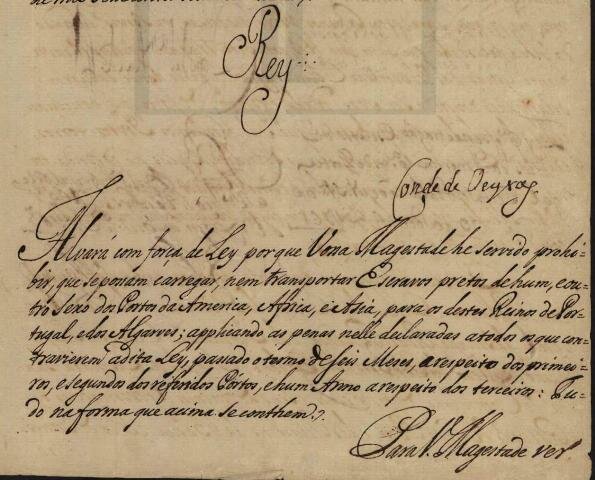 Rey
Conde de Oeyras.
Alvará com força de Ley porque Vossa Magestade he servido prohi-
bir, que se possam carregar, nem transportar Escravos pretos de hum, e ou-
tro Sexo dos Portos da America, Africa, e Asia, para os destes Reinos de Por-
tugal, e dos Algarves; applicando as penas nelle declaradas a todos os que con-
travierem a dita Ley, passado o termo de seis Meses, a respeito dos primei-
ros, e segundos dos referidos Pórtos, e hum Anno a respeito dos terceiros: Tu-
do na forma que acima se conthem.
Para V. Magestade ver.